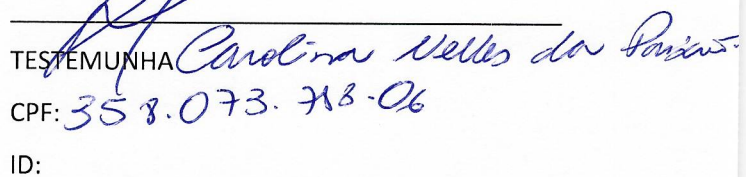 TESTEMUNHA Carolina Nelles da
CPF: 358.073.788-06
ID: